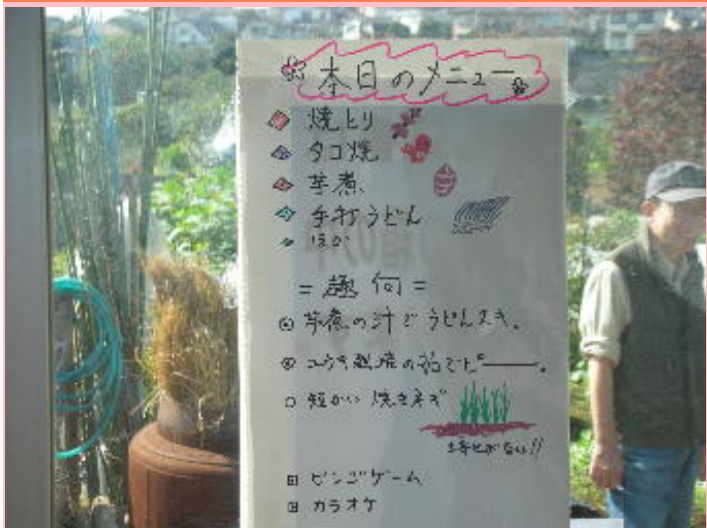 本日のメニュー
焼とり
タコ焼
芋煮
手打うどん
ほか
=趣向=
芋煮の汁でうどんすき。
の
短かい焼きネギ
がない!!
ビンゴゲーム
カラオケ